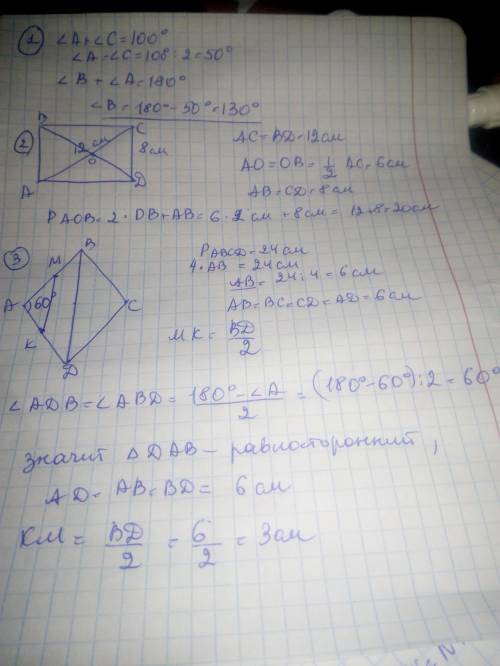 1 ∠A+∠C=100°
∠A=∠C=100:2=50°
∠B+∠A=180°
∠B=180°-50°=130°
2
B
C
12 см
8см
O
A
D
AC=BD=12см
AO=OB=1/2 AC=6см
AB=CD=8см
PAOB=2·OB+AB=6·2см+8см=12+8=20см
3
B
M
A
60°
K
C
D
PABCD=24см
4·AB=24см
AB=24:4=6см
AB=BC=CD=AD=6см
MK=BD/2
∠ADB=∠ABD=(180°-∠A)/2=(180°-60°):2=60°
значит ΔDAB-равносторонний,
AD=AB=BD=6см
KM=BD/2=6/2=3см